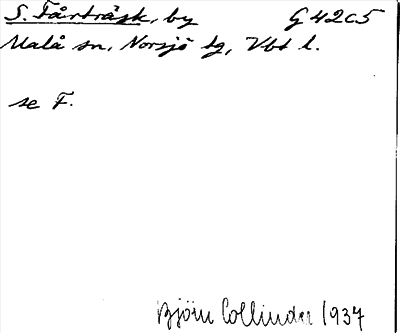 S. Fårträsk, by G 42 c 5
Malå sn, Norsjö tg, Vbt l.
se F.
Björn Collinder 1937